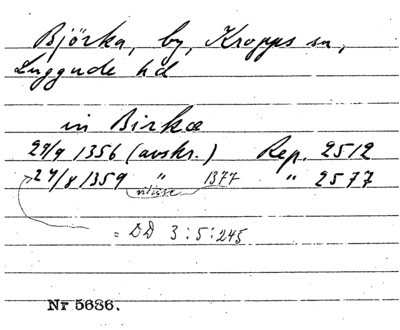 Björka, by, Kropps sn,
Luggude hd
in Birkæ
29/9 1356 (avskr.) Rep. 2512
24/8 1359 " 1377 " 2577
= DD 3:5:245
Nr 5686.